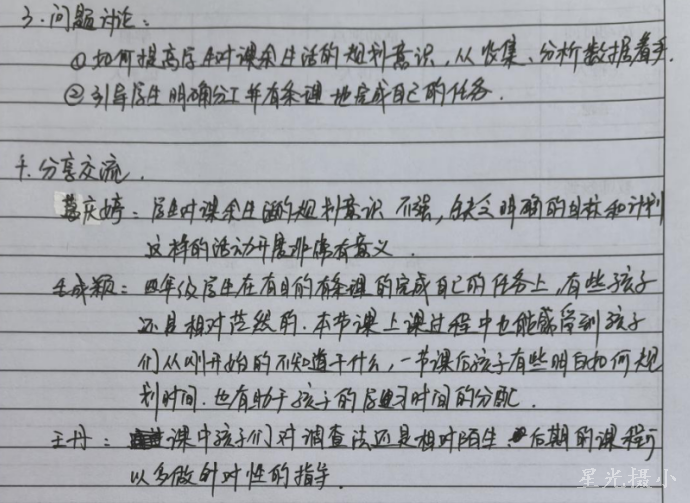 3.问题讨论:
①如何提高学生对课余生活的规划意识,从收集、分析数据着手.
②引导学生明确分工并有条理地完成自己的任务.
4.分享交流.
庆婷:学生对课余生活的规划意识不强,缺乏明确的目标和计划
这样的活动开展非常有意义.
成颖:四年级学生在有目的有条理的完成自己的任务上,有些孩子
还是相对茫然的.本节课上课过程中也能感受到孩子
们从刚开始的不知道干什么,一节课后孩子有些明白如何规
划时间.也有助于孩子的学习时间的分配.
王丹:课中孩子们对调查法还是相对陌生.后期的课程可
以多做针对性的指导.
星光摄小